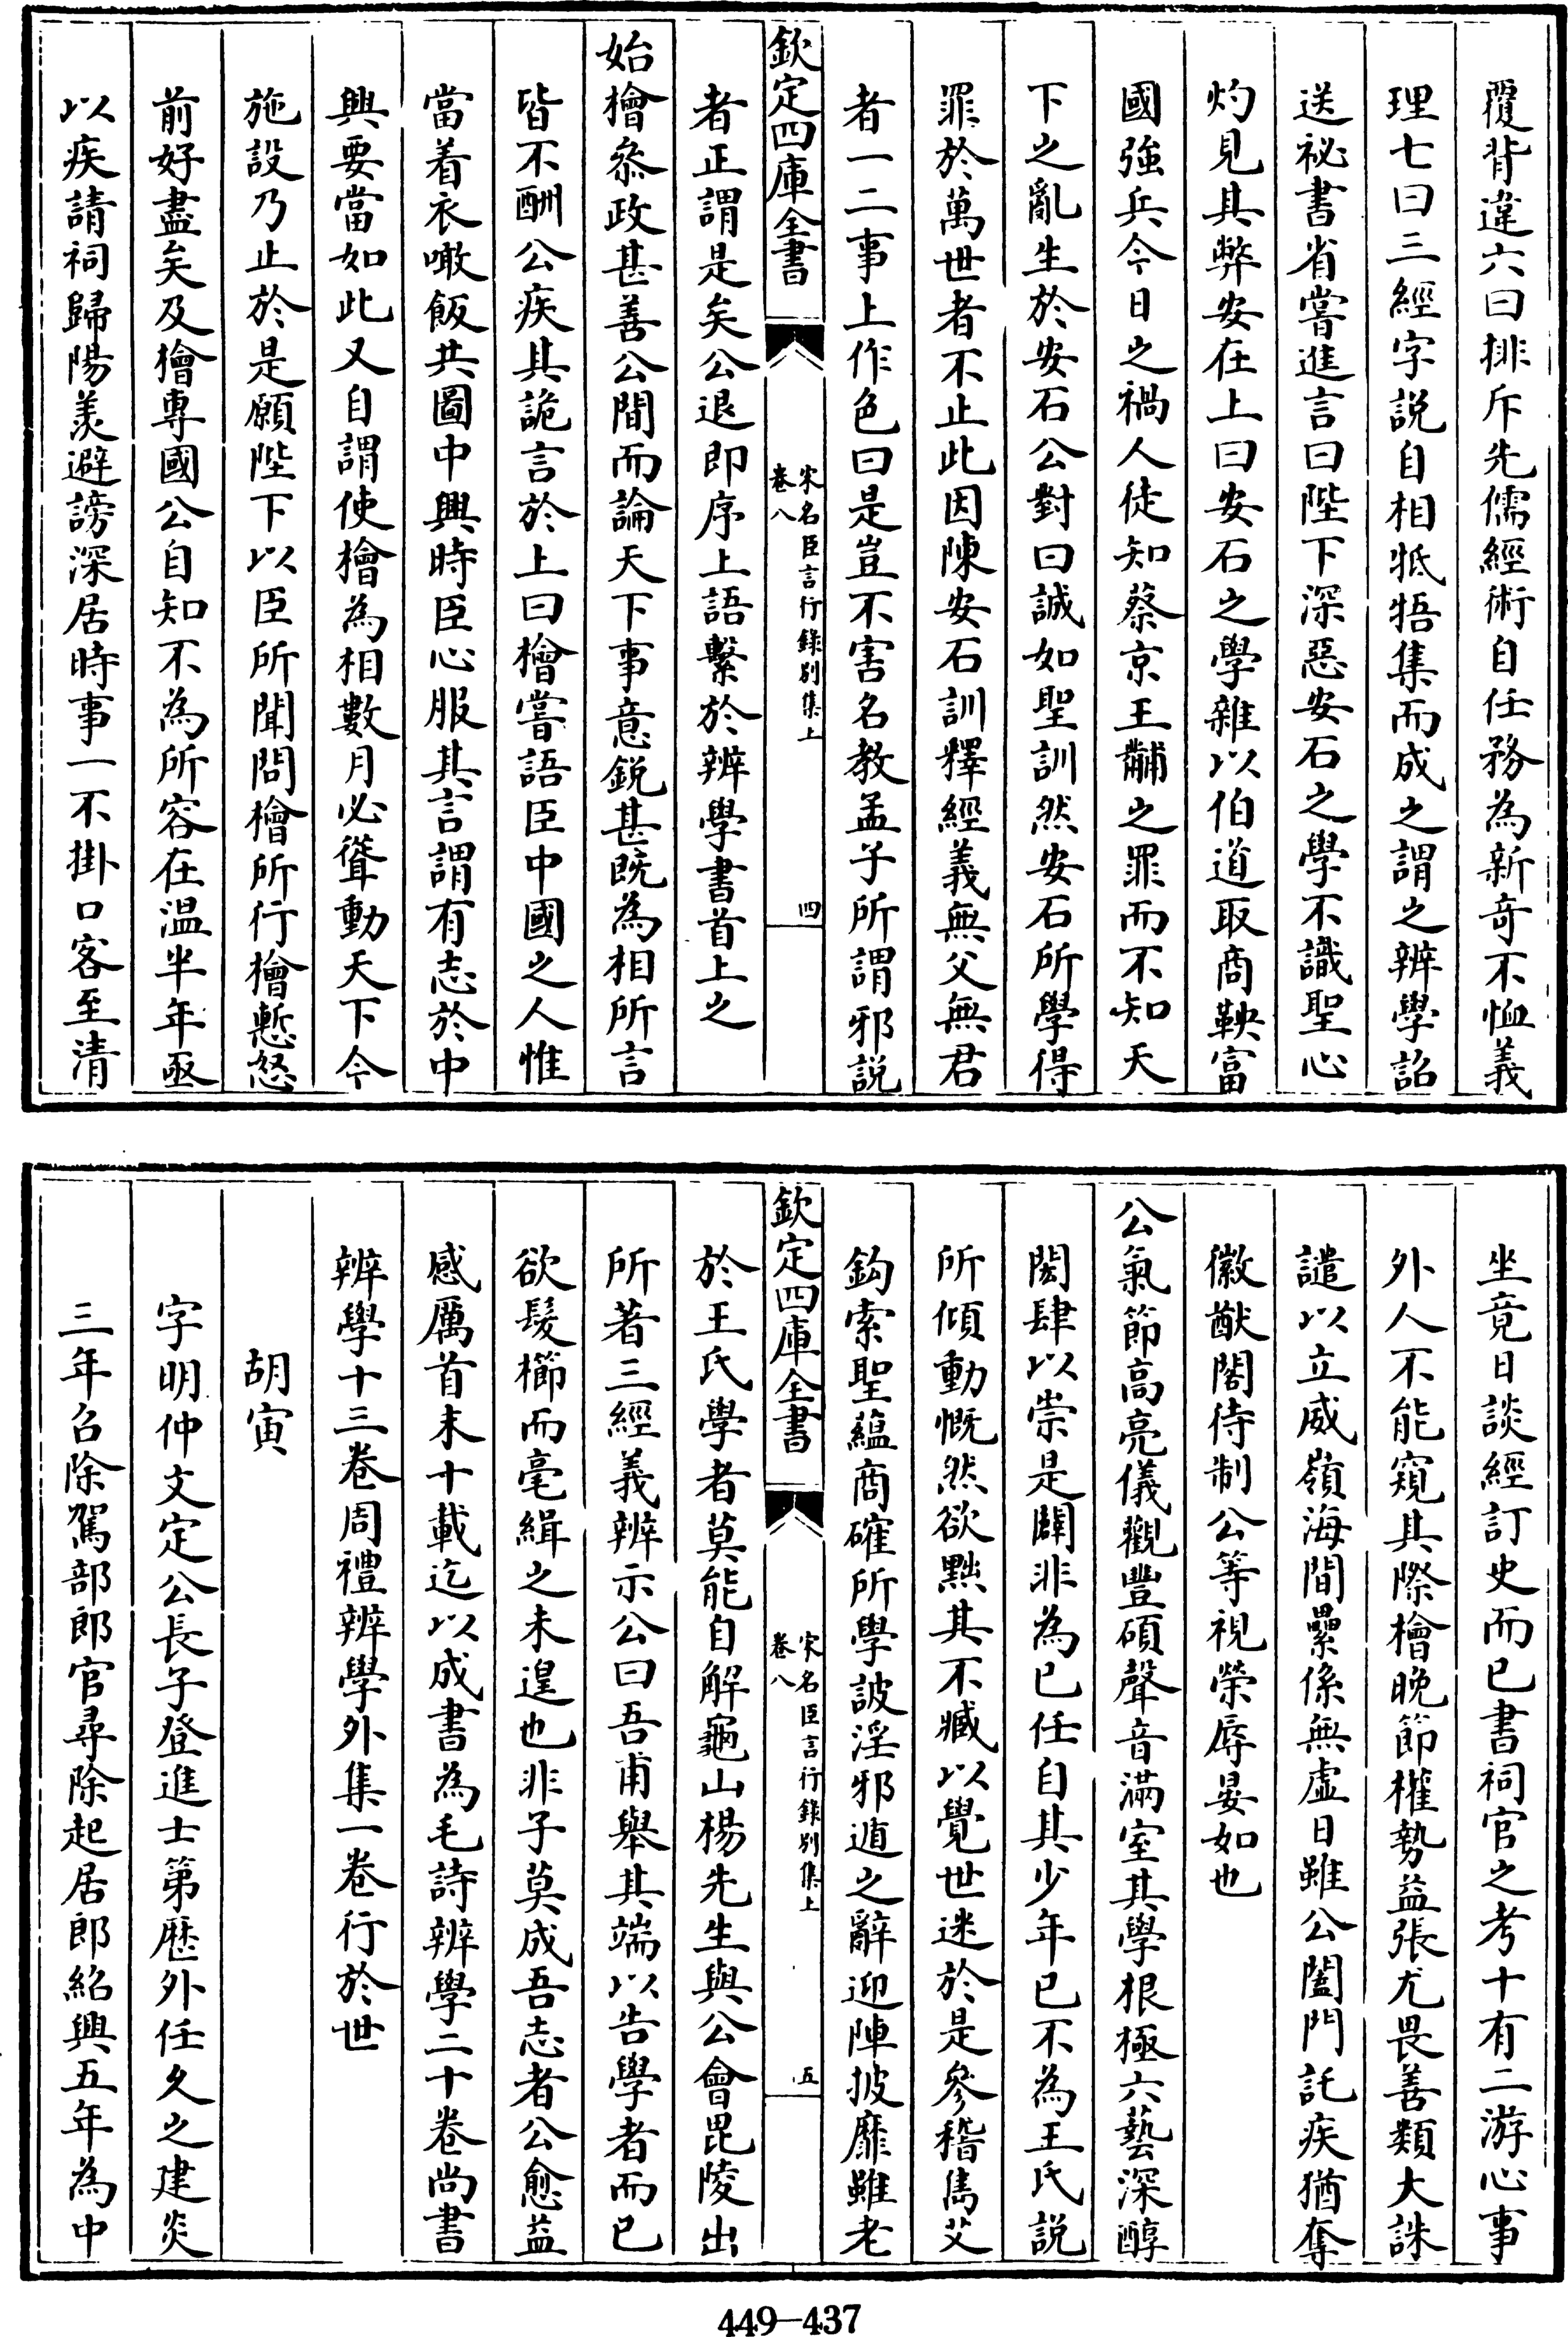 覆背違六曰排斥先儒經術自任務為新奇不恤義
理七曰三經字說自相牴牾集而成之謂之辨學詔
送祕書省嘗進言曰陛下深惡安石之學不識聖心
灼見其弊安在上曰安石之學雜以伯道取商鞅富
國強兵今日之禍人徒知蔡京王黼之罪而不知天
下之亂生於安石公對曰誠如聖訓然安石所學得
罪於萬世者不止此因陳安石訓釋經義無父無君
者一二事上作色曰是豈不害名教孟子所謂邪說
欽定四庫全書
宋名臣言行錄別集上
卷八
四
者正謂是矣公退即序上語繫於辨學書首上之
始檜叅政甚善公間而論天下事意銳甚既為相所言
皆不酬公疾其詭言於上曰檜嘗語臣中國之人惟
當着衣噉飯共圖中興時臣心服其言謂有志於中
興要當如此又自謂使檜為相數月必聳動天下今
施設乃止於是願陛下以臣所聞問檜所行檜慙怒
前好盡矣及檜專國公自知不為所容在溫半年亟
以疾請祠歸陽羨避謗深居時事一不掛口客至清
坐竟日談經訂史而已書祠官之考十有二游心事
外人不能窺其際檜晚節權勢益張尤畏善類大誅
譴以立威嶺海間纍係無虛日雖公闔門託疾猶奪
徽猷閣待制公等視榮辱晏如也
公氣節高亮儀觀豐碩聲音滿室其學根極六藝深醇
閎肆以崇是闢非為已任自其少年已不為王氏說
所傾動慨然欲黜其不臧以覺世迷於是參稽雋艾
鈎索聖蘊商確所學詖淫邪遁之辭迎陣披靡雖老
欽定四庫全書
宋名臣言行錄別集上
卷八
五
於王氏學者莫能自解龜山楊先生與公會毘陵出
所著三經義辨示公曰吾甫舉其端以告學者而已
欲髮櫛而毫緝之未遑也非子莫成吾志者公愈益
感厲首末十載迄以成書為毛詩辨學二十卷尚書
辨學十三卷周禮辨學外集一卷行於世
胡寅
字明仲文定公長子登進士第歷外任久之建炎
三年召除駕部郎官尋除起居郎紹興五年為中
449-437